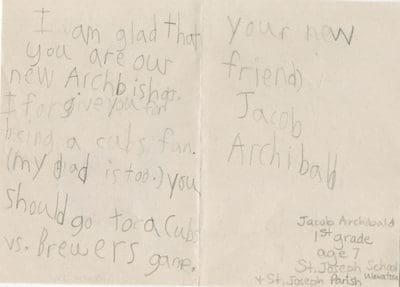 I am glad that
you are our
new Archbishop.
I forgive you for
being a cubs fan.
(my dad is too.) you
should go to a Cubs
vs. Brewers game.
your new
friend,
Jacob
Archibald
Jacob Archibald
1st grade
age 7
St. Joseph School
+ St. Joseph Parish Wauwatosa